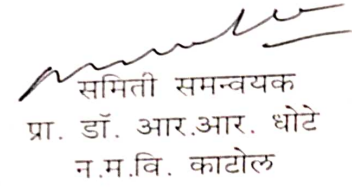 समिती समन्वयक
प्रा. डॉ. आर.आर. धोटे
न.म.वि. काटोल